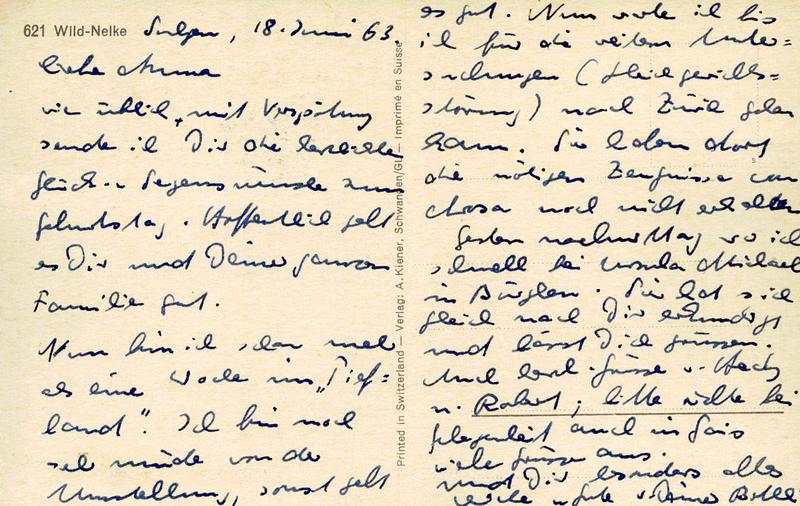 621 Wild-Nelke
Sulgen, 18. Juni 63.
Liebe Anna
wie üblich, mit Verspätung
sende ich Dir die herzlichsten
Glück- u Segenswünsche zum
Geburtstag. Hoffentlich geht
es Dir und Deiner ganzen
Familie gut.
Nun bin ich schon mehr
als eine Woche im „Tief=
land". Ich bin noch
sehr müde von der
Umstellung, sonst geht
Printed in Switzerland — Verlag: A. Kiener, Schwanden/GL — Imprimé en Suisse
es gut. Nun warte ich bis
ich für die weitern Unter=
suchungen (Gleichgewichts=
störung) nach Zürich gehen
kann. Sie haben dort
die nötigen Zeugnisse von
noch nicht erhalten
Gestern nachmittag war ich
schnell bei Ursula Michael
in Bürglen. Sie hat sich
gleich nach Dir erkundigt
und lässt Dich grüssen.
Auch herzl. Grüsse v. Hedy
u. Robert; bitte richte bei
Gelegenheit auch in Gais
viele Grüsse aus.
und Dir besonders alles
Gute v. Deiner